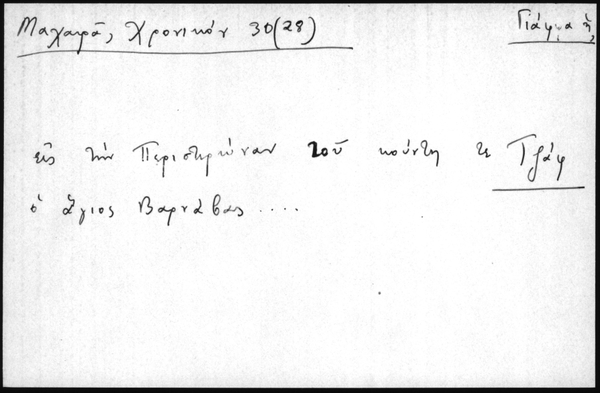 Μαχαιρᾶ, Χρονικόν 30 (28)
Γιάφφα ἡ,
εἰς τὴν Περιστερώναν τοῦ κούντη τε Τζάφ
ὁ ἅγιος Βαρνάβας ....